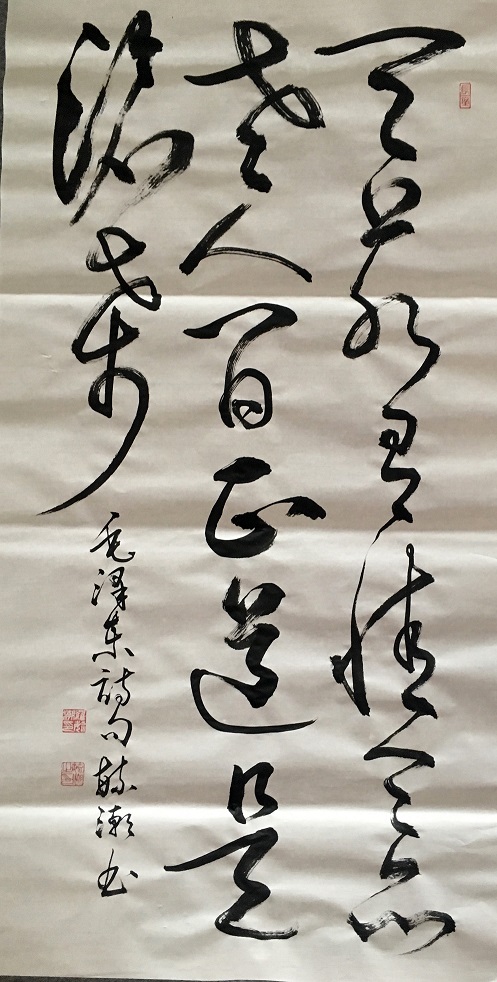 天若有情天亦
老人间正道是
沧桑
毛澤东詩句 赫瀬书